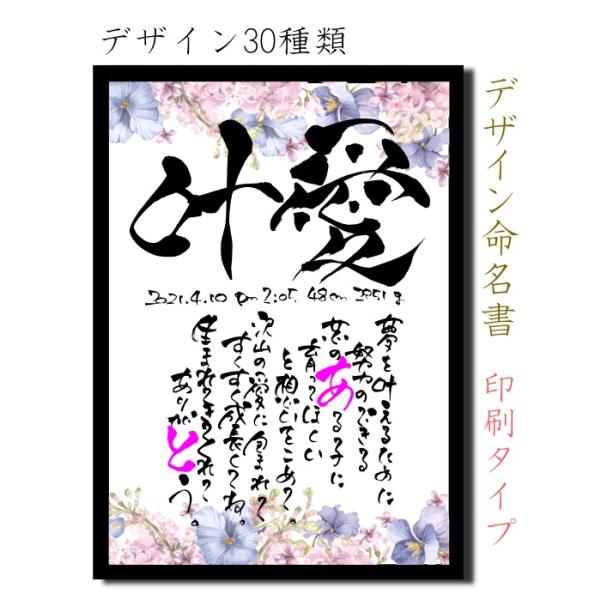 デザイン30種類
デザイン命名書 印刷タイプ
叶愛
2021.4.10 pm 2:05 48cm 2851g
夢を叶えるために
努力のできる
芯のある子に
育ってほしい
と想いをこめて。
沢山の愛に包まれて
すくすく成長してね。
生まれてきてくれて
ありがとう。